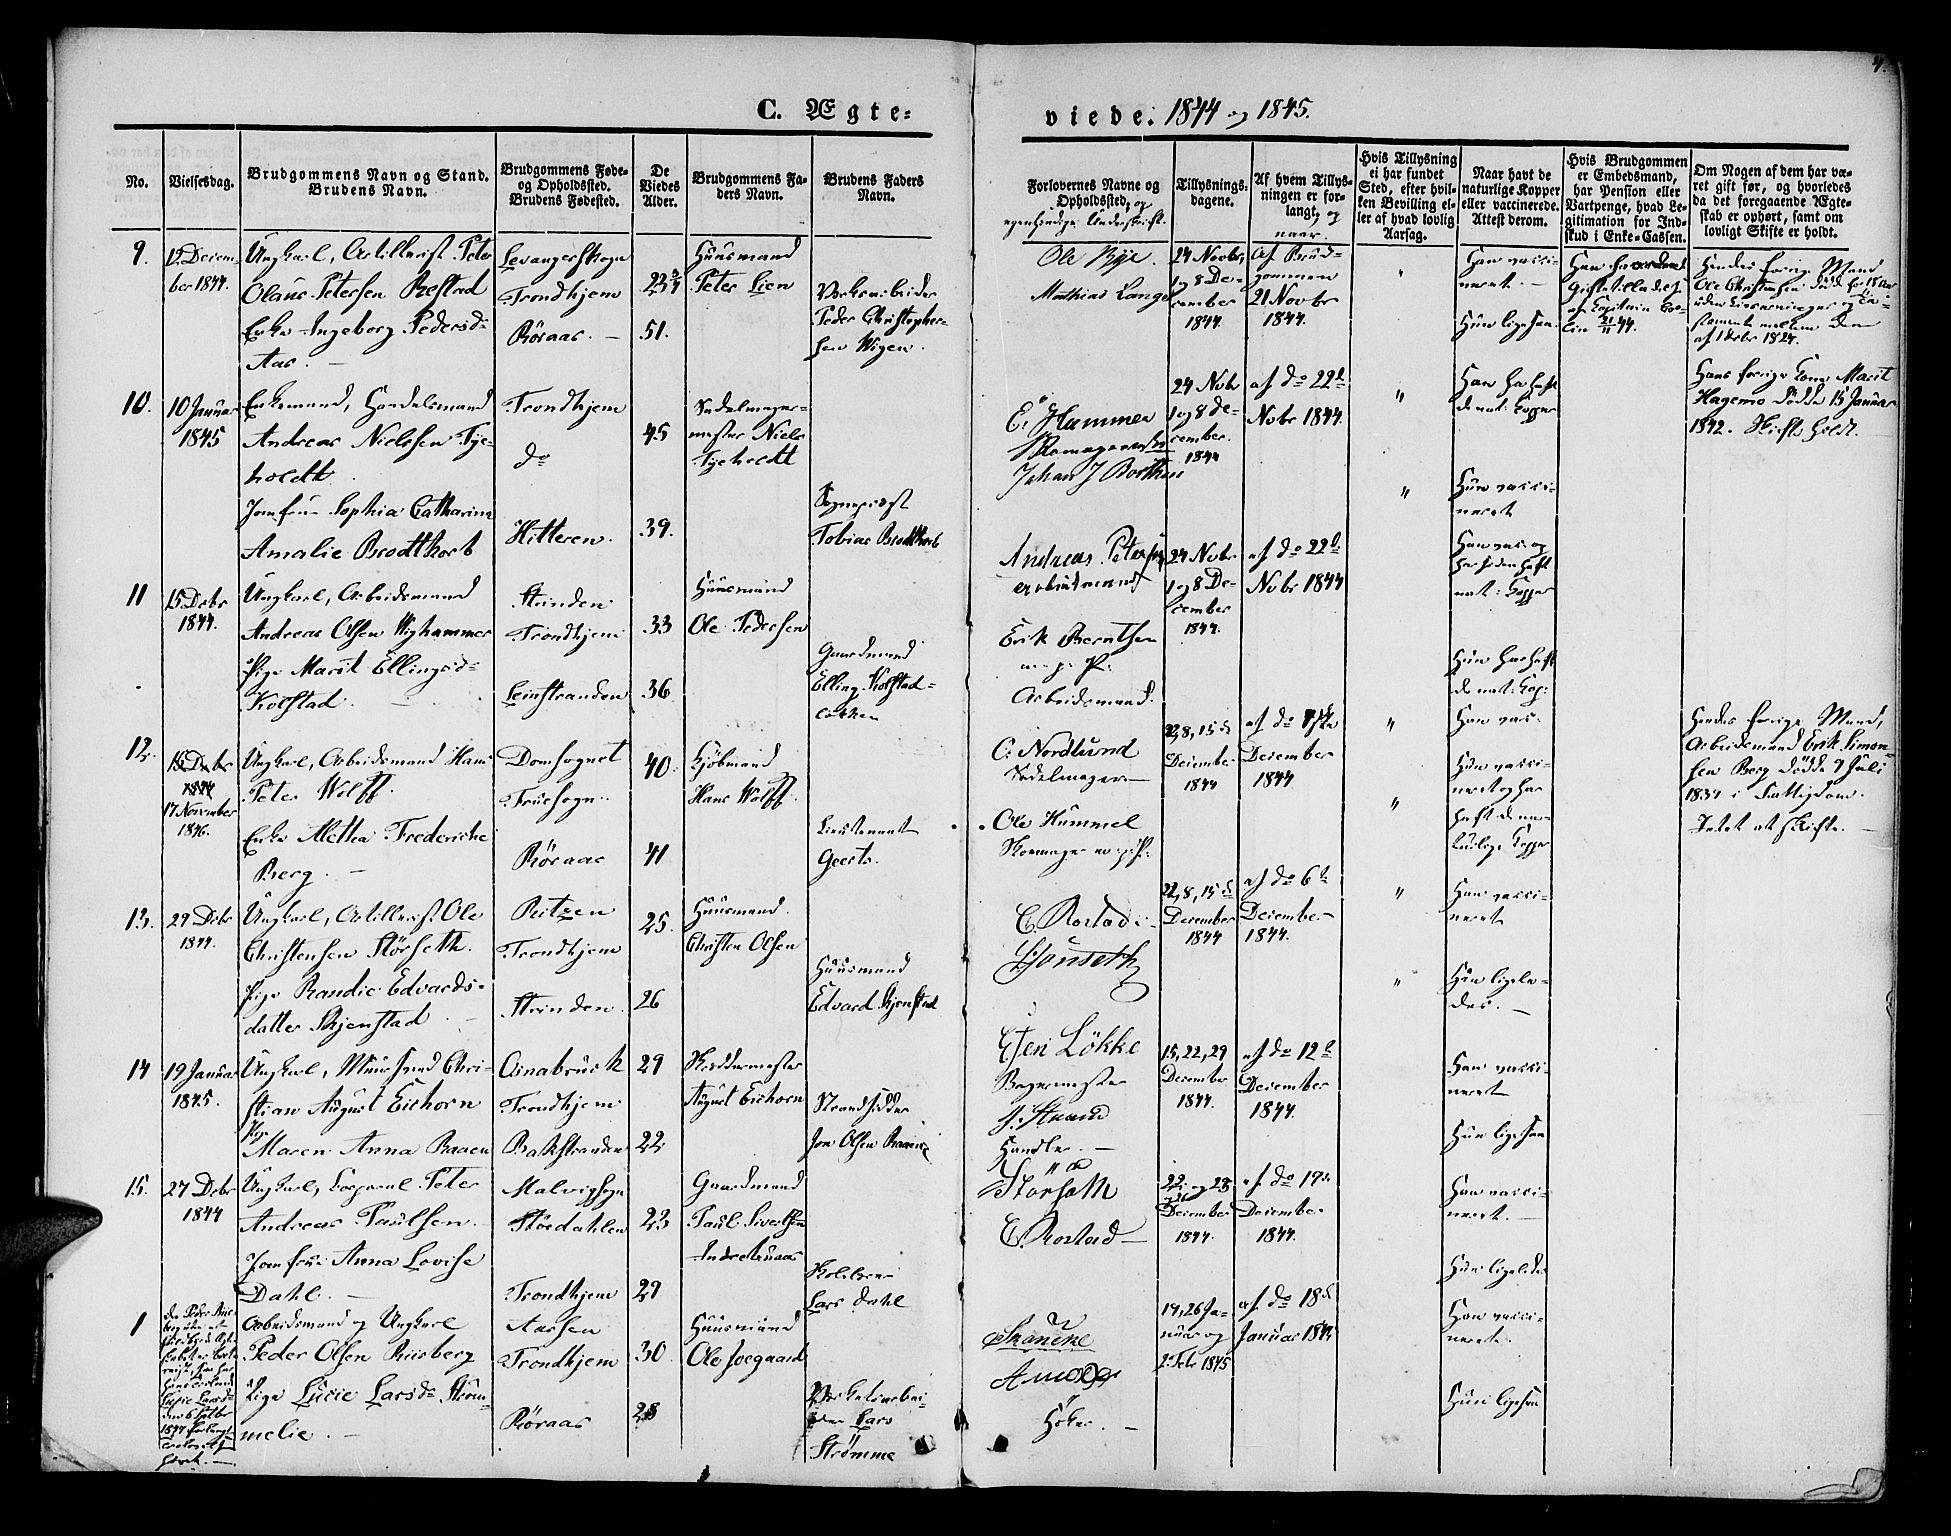 4.
C. Ægte=
viede. 1844 og 1845.
No.
Vielsesdag.
Brudgommens Navn og Stand.
Brudens Navn.
Brudgommens Føde-
og Opholdssted.
Brudens Fødested.
De
Viedes
Alder.
Brudgommens Fa-
ders Navn.
Brudens Faders
Navn.
Forlovernes Navne og
Opholdssted, og
egenhændige Underskrift.
Tillysnings-
dagene.
Af hvem Tillys-
ningen er for-
langt, og
naar.
Hvis Tillysning
ei har fundet
Sted, efter hvil-
ken Bevilling el-
ler af hvad lovlig
Aarsag.
Naar havt de
naturlige Kopper
eller vaccinerede.
Attest derom.
Hvis Brudgommen
er Embedsmand,
har Pension eller
Vartpenge, hvad Le-
gitimation for Ind-
skud i Enke-Cassen.
Om Nogen af dem har væ-
ret gift før, og hvorledes
da det foregaaende Ægte-
skab er ophørt, samt om
lovligt Skifte er holdt.
9.
12 Decem-
ber 1844.
Ungkarl, Artillerist Peter
Olaus Petersen Restad
Enke Ingeborg Pedersd=
Aas. —
Levanger Skogn
Trondhjem
Röraas. —
51.
Huusmand
Peter Lien
Værksarbeider
Peder Christopher-
sen Wigen.
Ole Rye.
Mathias Lange
24 Novbr,
1 og 8 De-
cember
1844.
Af Brud-
gommen
21 Novbr
1844.
"
Han vacci-
neret. —
Hun ligesaa.
Hendes forige Mand
Ole Christensen død
10.
10 Januar
1845
Enkemand, Handelsmand
Andreas Nielsen Tye-
holdt.
Jomfru Sophia Catharina
Amalie Brodtkorb
Trondhjem
do
Hitteren.
45
39.
Sadelmager-
mester Niels
Tyeholdt
Sognepræst
Tobias Brodtkorb
E. Hammer
Johan J Borthen
24 Novbr
1 og 8 De-
cember.
1844
af do 22d
Novbr 1844
"
"
Han har haft
de nat: Kopper
Hun vacci-
neret
Hans forige Kone Marit
Hagemo døde 15 Januar
1842. Skifte holdt.
11
15 Decbr
1844.
Ungkarl, Arbeidsmand
Andreas Olsen Wighammer
Pige Marit Ellingsd=
Kolstad.
Strinden
Trondhjem
Leinstranden
33
36
Huusmand
Ole Pedersen
Gaardmand
Elling Kolstad=
løkken
Andreas Petersen
arbeidsmand
Erik Berntsen
m. p. P.
Arbeidsmand.
24 Novbr
1 og 8 De-
cember
1844.
af do 22d
Novbr 1844
Han vac. og
har siden haft
nat: Kopper
Hun har haft
de nat: Kop:
12.
15 Decbr
1844
17 November
1846.
Ungkarl, Arbeidsmand Hans
Peter Wolff.
Enke Alethea Frederiche
Berg. —
Domsognet
Fruesogn.
Röraas
40.
41
Kjøbmand
Hans Wolff.
Lieutenant
Geerts.
C. Nordlund
Sadelmager—
Ole Hummel
Skomager m. p. P.
December
1844
December
1844
"
"
Han vac.
Hun vacci-
neret og har
haft de na-
turlige Kopper
Hendes forige Mand,
Arbeidsmand Erik Simon-
sen Berg døde 7 Juli
1834 i Fattigdom.
Intet at skifte. —
13.
29 Decbr
1844.
Ungkarl, Artillerist Ole
Christensen Störseth.
Pige Randie Edvards-
datter Skjenstad
Reitzen
Trondhjem
Strinden.
25.
26
Huusmand.
Christen Olsen
Huusmand
Edvard Skjenstad
E. Rostad.
8, 15d
December
1844
af do 6d
December
1844.
"
"
Han vacci-
neret
Hun ligele-
des. —
14
19 Januar
1845.
Ungkarl, Muursvend Chri-
stian August Eichorn
Pige
Maren Anna Raaen
Osnabrück
Trondhjem
Bakstranden
29
22
August Eichorn
Strandsidder
Jon Olsen Raaen
Esen Lökke
Bagermester
J. Strand
Handler. —
15, 22, 29
December
1844.
af do 12d
December
1844.
Han vacci-
neret
Hun ligesaa
15.
27 Decbr
1844
Ungkarl, Corporal Peter
Andreas Paulsen.
Jomfrue Anna Lovise
Dahl. —
Malvigsogn
Stördahlen
Trondhjem
23
29
Gaardmand
Paul Sivertsen
Lars Dahl
Störseth
E. Rostad—
December
1844.
af do 19d
December
1844.
Han vacci-
neret. —
Hun ligeledes
1
Arbeidsmand og Ungkarl
Peder Olsen Riisberg
Pige Lucie Larsd= Ström-
melie. —
Aasen
Trondhjem
Röraas
30
28
Huusmand
Ole Soegaard
Lars
Strömme
Skancke
Höker. —
19, 26 Ja-
nuar og
2 Febr 1845
af do 18d
Januar 1845
Han vacci-
neret.
Hun ligesaa